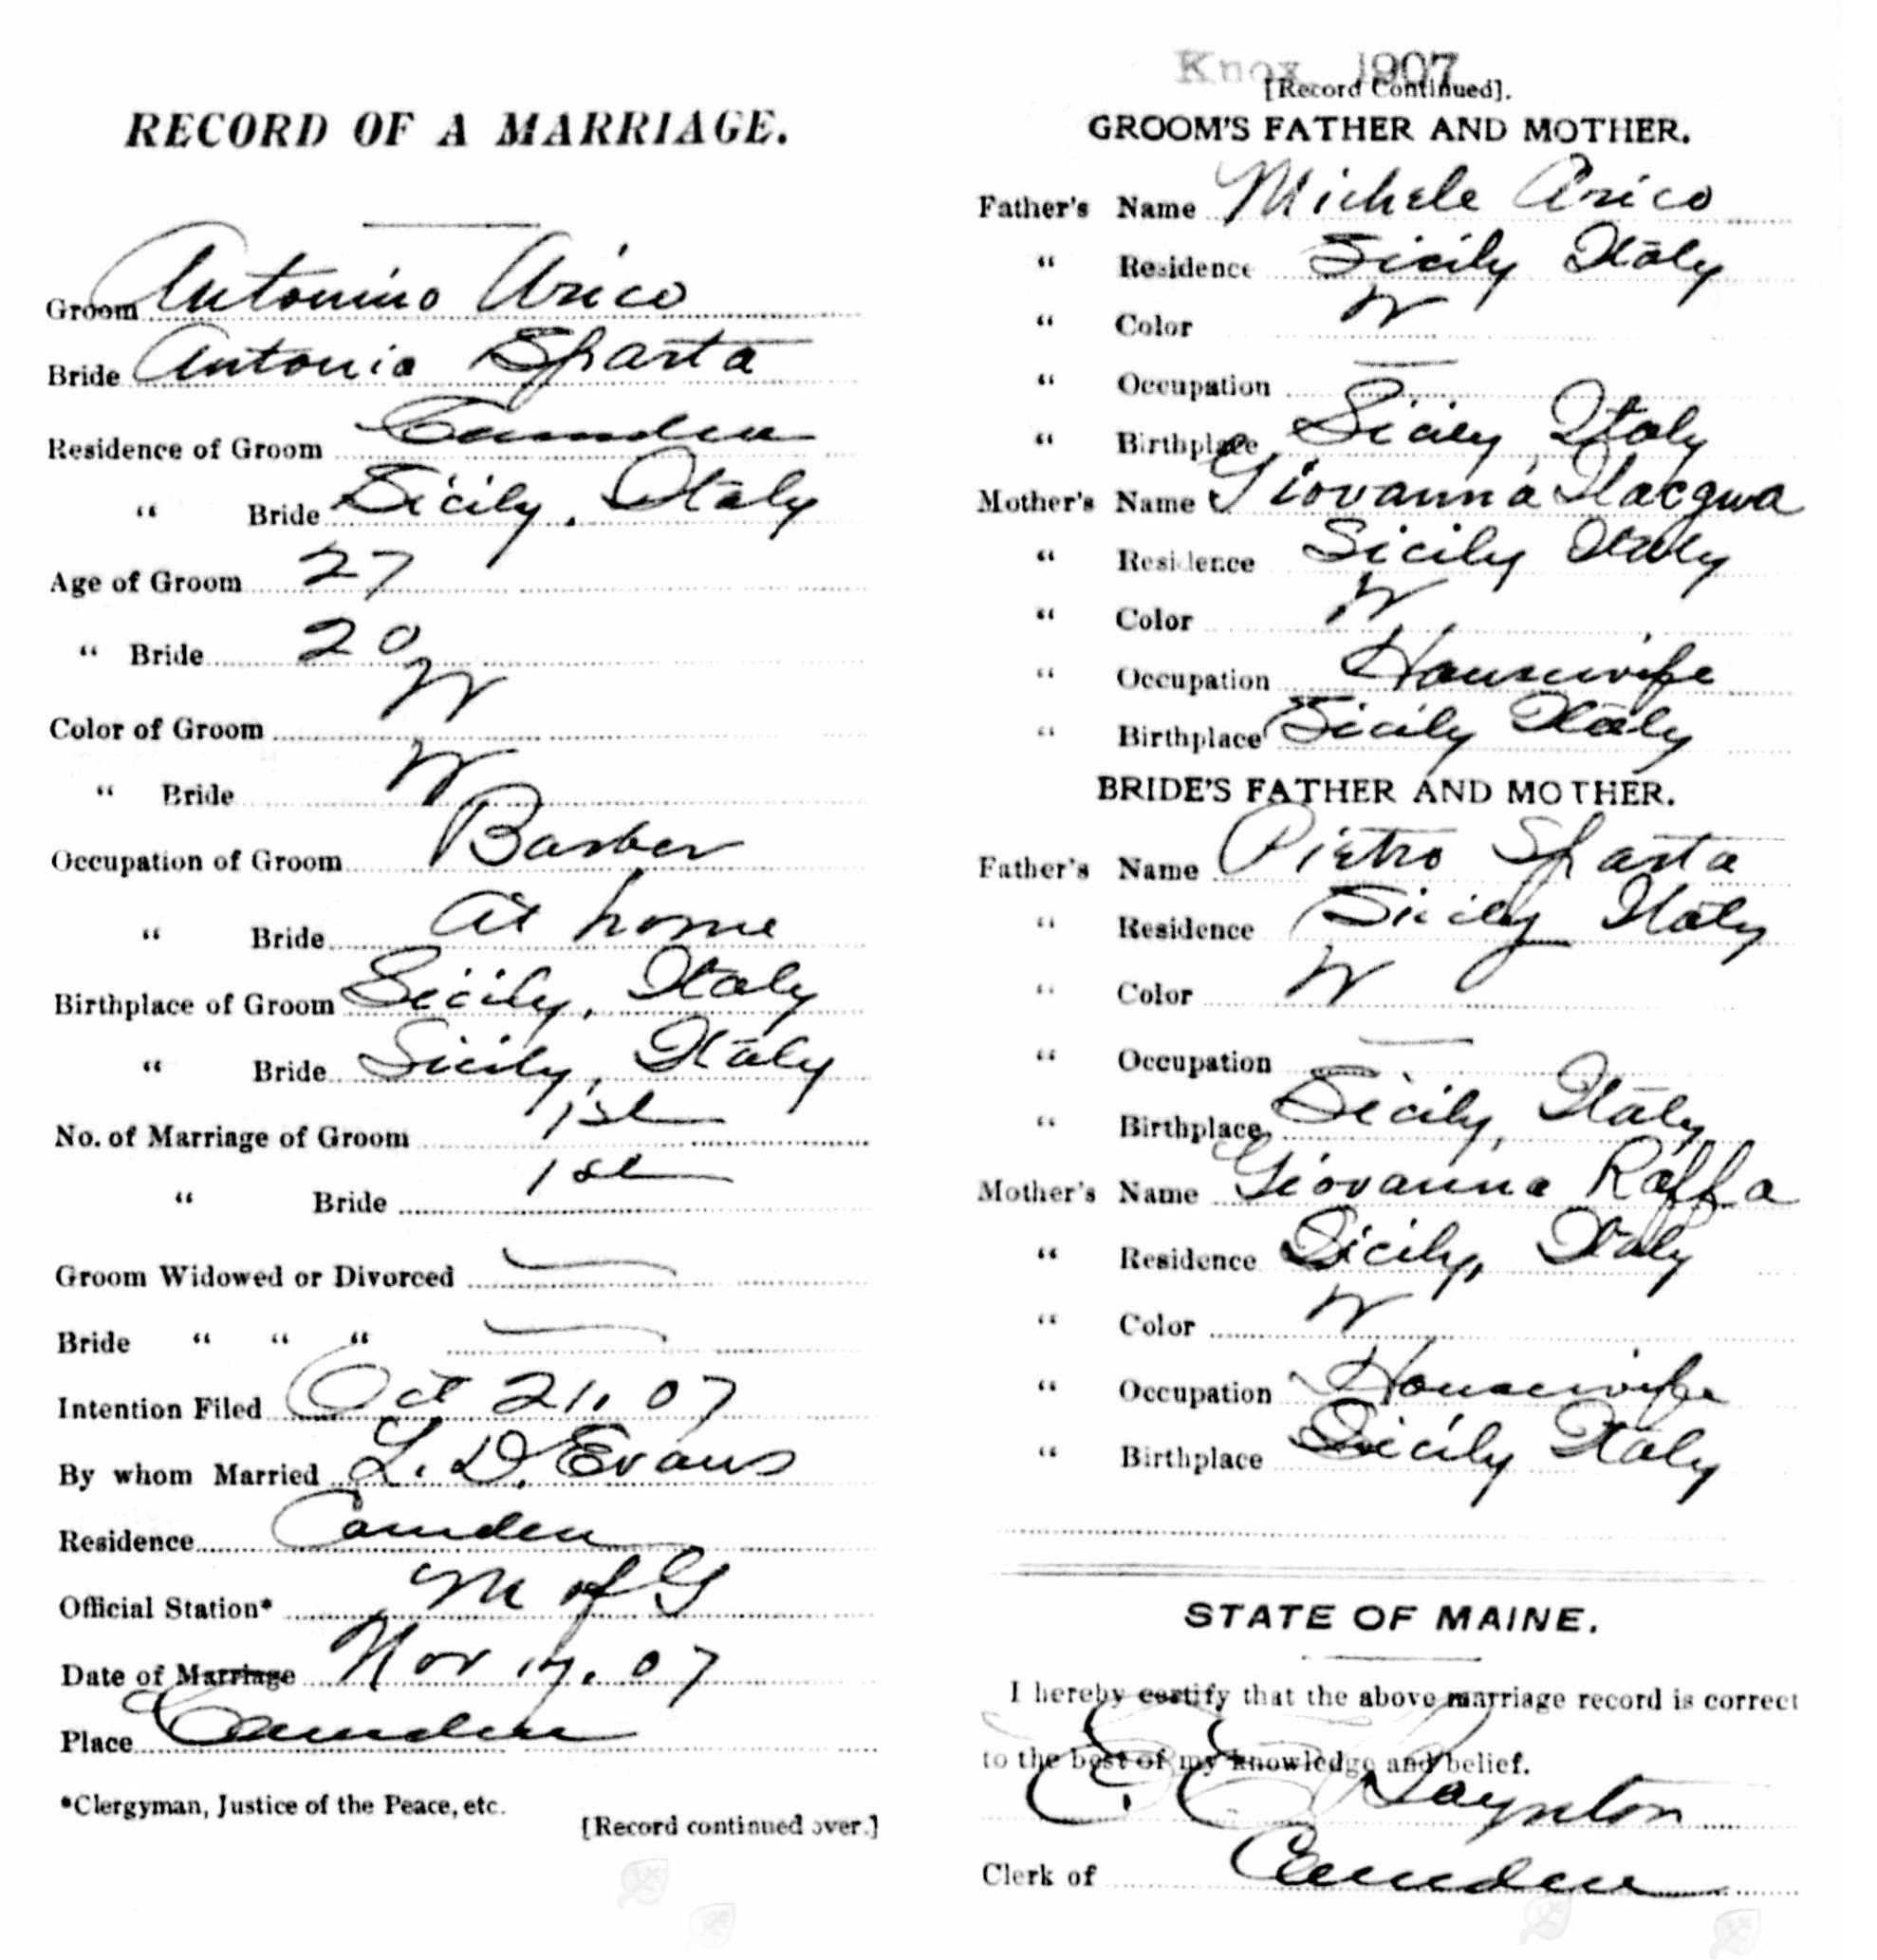 RECORD OF A MARRIAGE.
Groom Antonino Arico
Bride Antonia Sparta
Residence of Groom Camden
" Bride Sicily, Italy
Age of Groom 27
" Bride 20
Color of Groom W
" Bride W
Occupation of Groom Barber
" Bride At home
Birthplace of Groom Sicily, Italy
" Bride Sicily, Italy
No. of Marriage of Groom 1st
" Bride 1st
Groom Widowed or Divorced —
Bride " " " —
Intention Filed Oct 21, 07
By whom Married L. D. Evans
Residence Camden
Official Station* M of G
Date of Marriage Nov 07
Place Camden
*Clergyman, Justice of the Peace, etc.
[Record continued over.]
Knox 1907
[Record Continued].
GROOM'S FATHER AND MOTHER.
Father's Name Michele Arico
" Residence Sicily Italy
" Color W
" Occupation —
" Birthplace Sicily, Italy
Mother's Name Giovanna
" Residence Sicily Italy
" Color W
" Occupation Housewife
" Birthplace Sicily Italy
BRIDE'S FATHER AND MOTHER.
Father's Name Pietro Sparta
" Residence Sicily Italy
" Color W
" Occupation —
" Birthplace Sicily, Italy
Mother's Name Giovanna Raffa
" Residence Sicily, Italy
" Color W
" Occupation Housewife
" Birthplace Sicily Italy
STATE OF MAINE.
I hereby certify that the above marriage record is correct
to the best of my knowledge and belief.
Clerk of Camden